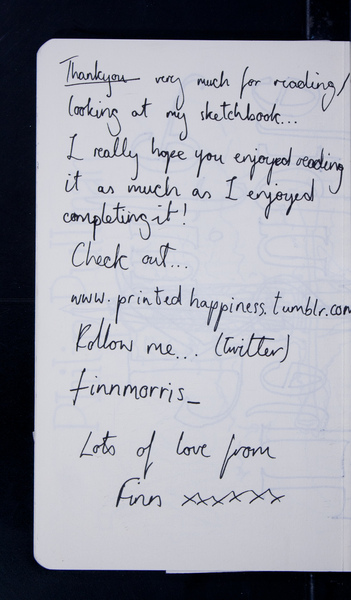 Thankyou very much for reading/
looking at my sketchbook...
I really hope you enjoyed reading
it as much as I enjoyed
completing it!
Check out...
www.printedhappiness.tumblr.com
Follow me... (twitter)
finnmorris_
Lots of love from
Finn xxxxxx